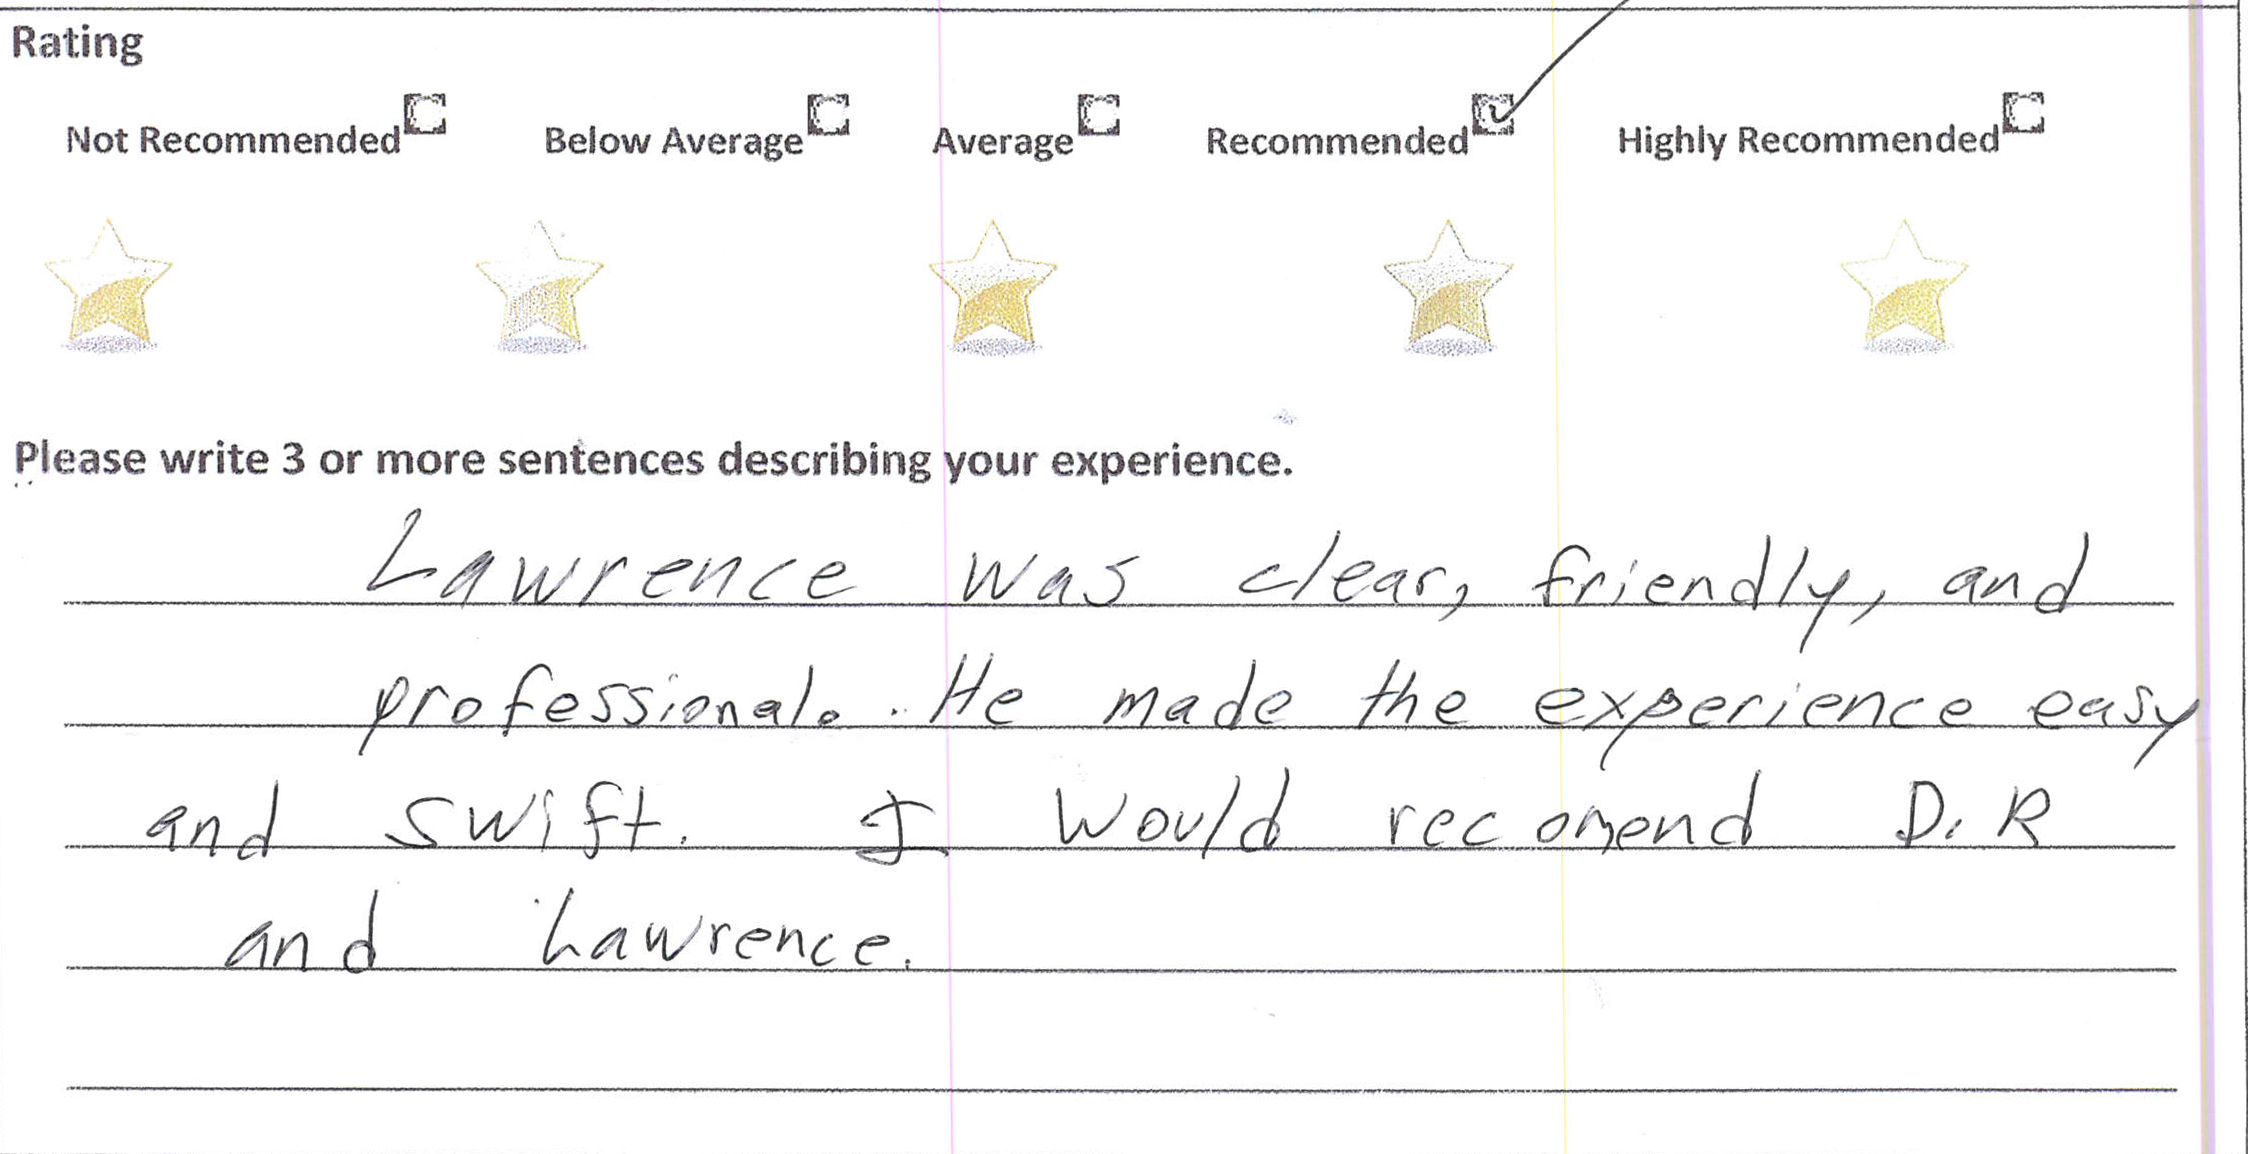 Rating
Not Recommended Below Average Average Recommended Highly Recommended
Please write 3 or more sentences describing your experience.
Lawrence was clear, friendly, and
professional. He made the experience easy
and swift. I would recomend D.R
and Lawrence.